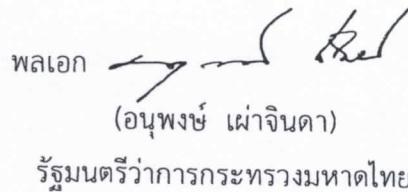 พลเอก
(อนุพงษ์ เผ่าจินดา)
รัฐมนตรีว่าการกระทรวงมหาดไทย